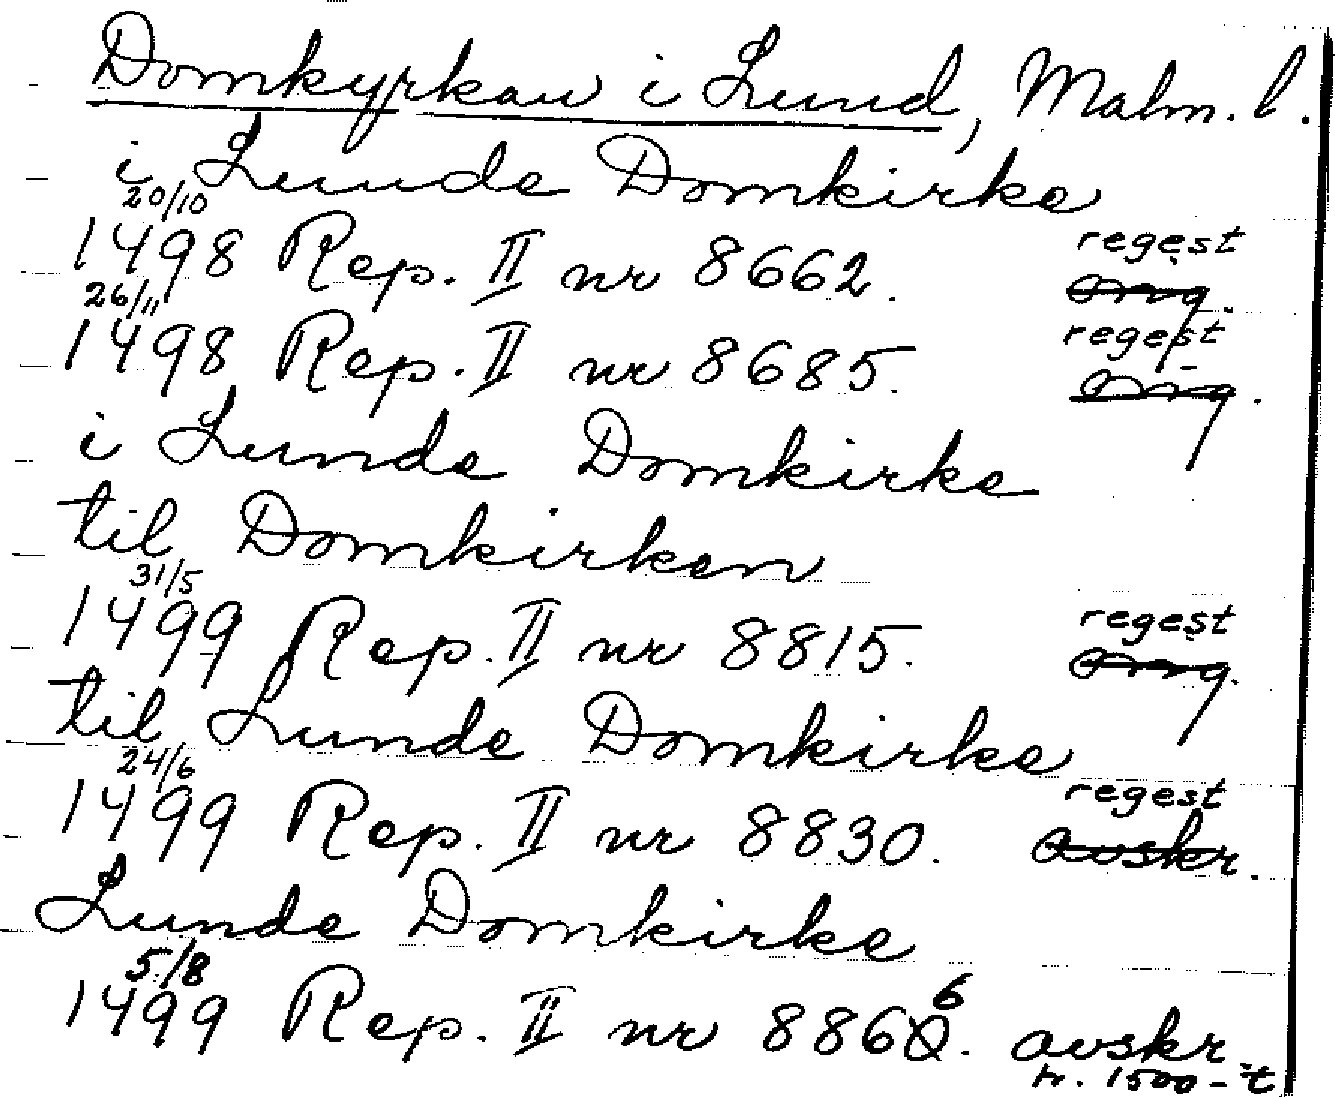 Domkyrkan i Lund, Malm. l.
i Lunde Domkirke
20/10
1498 Rep. II nr 8662. regest
orig.
26/11
1498 Rep. II nr 8685. regest
orig.
i Lunde Domkirke
til Domkirken
31/5
1499 Rep. II nr 8815. regest
orig.
til Lunde Domkirke
24/6
1499 Rep. II nr 8830. regest
avskr.
Lunde Domkirke
5/8
1499 Rep. II nr 8866. avskr
fr. 1500-t